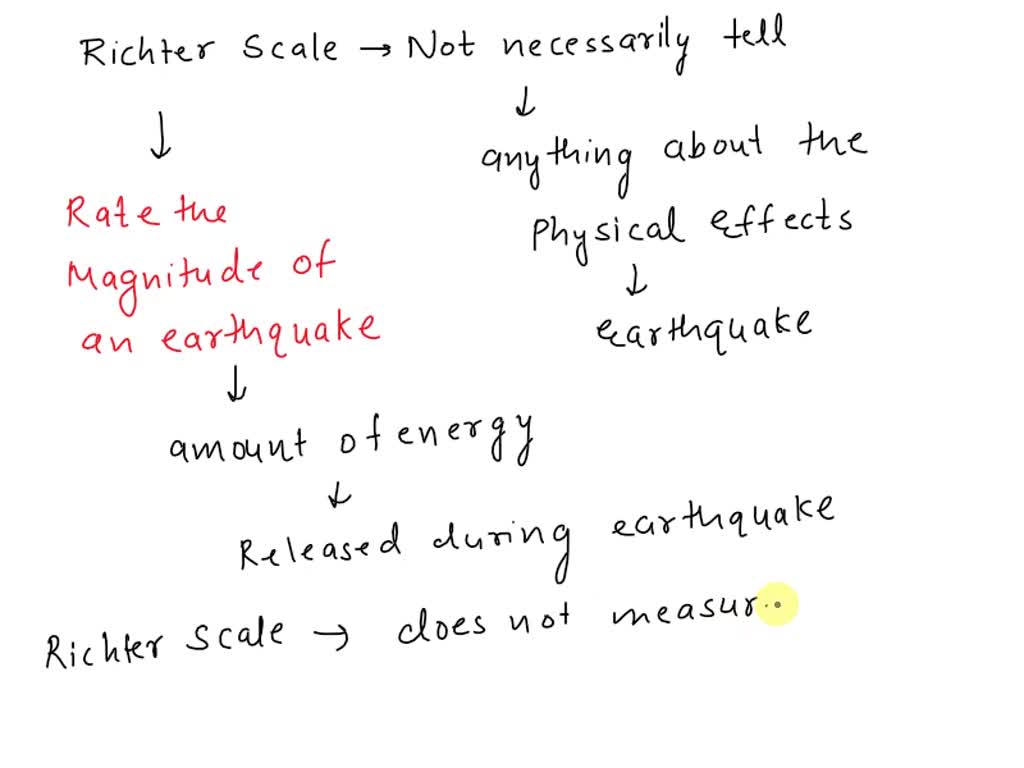 Richter Scale → Not necessarily tell
↓
↓
anything about the
Physical Effects
↓
Earthquake
Rate the
Magnitude of
an earthquake
↓
amount of energy
↓
Released during earthquake
Richter Scale → does not measur